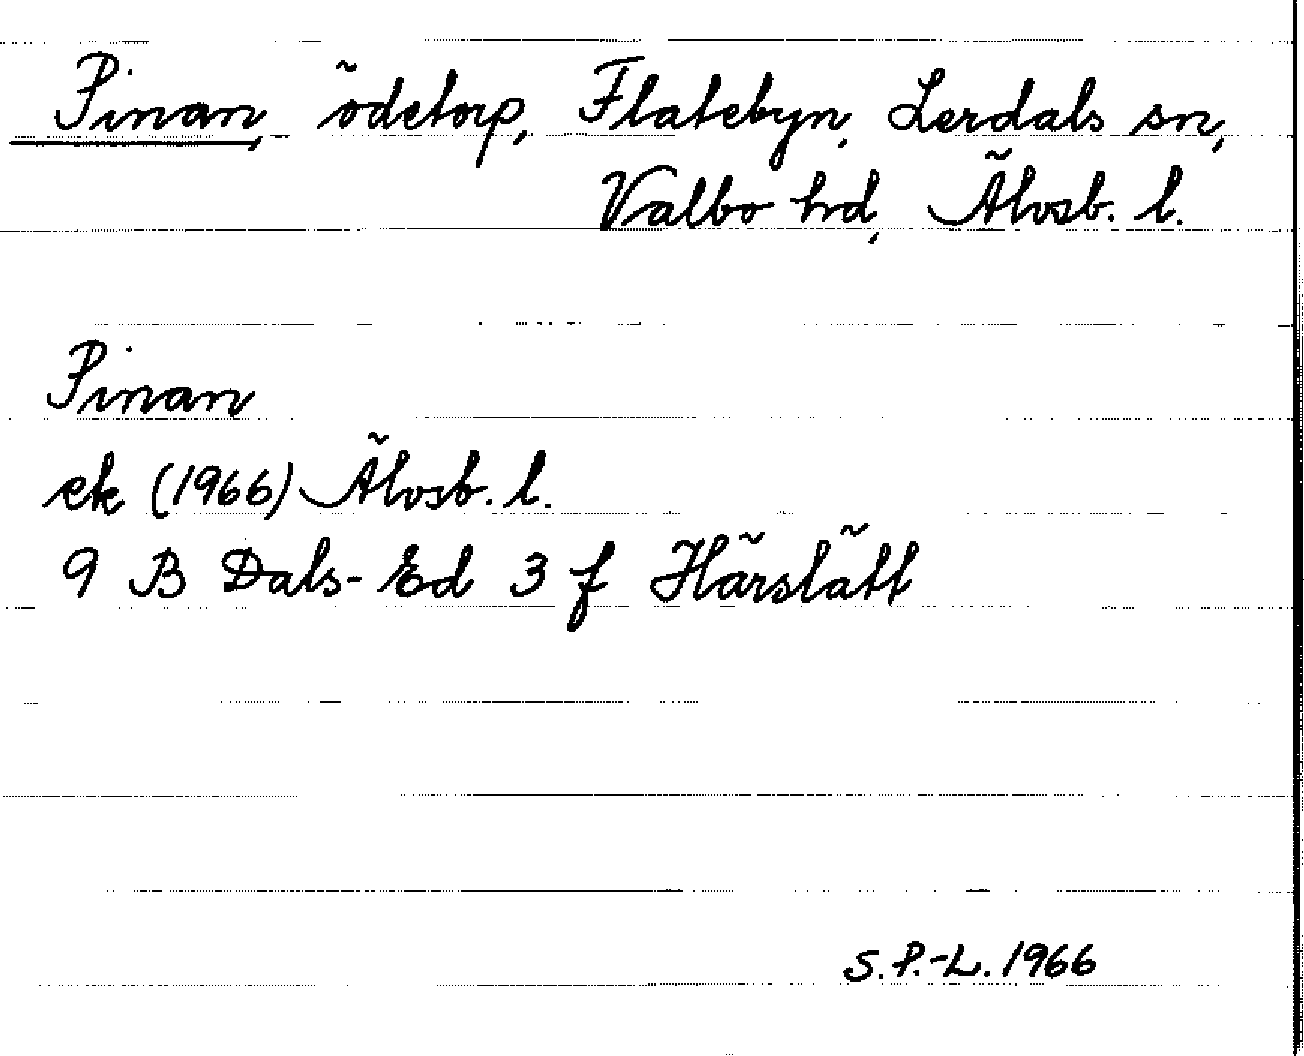 Pinan, ödetorp, Flatebyn, Lerdals sn,
Valbo hd, Älvsb. l.
Pinan
ek (1966) Älvsb. l.
9 B Dals-Ed 3 f Härslätt
S.P.-L. 1966